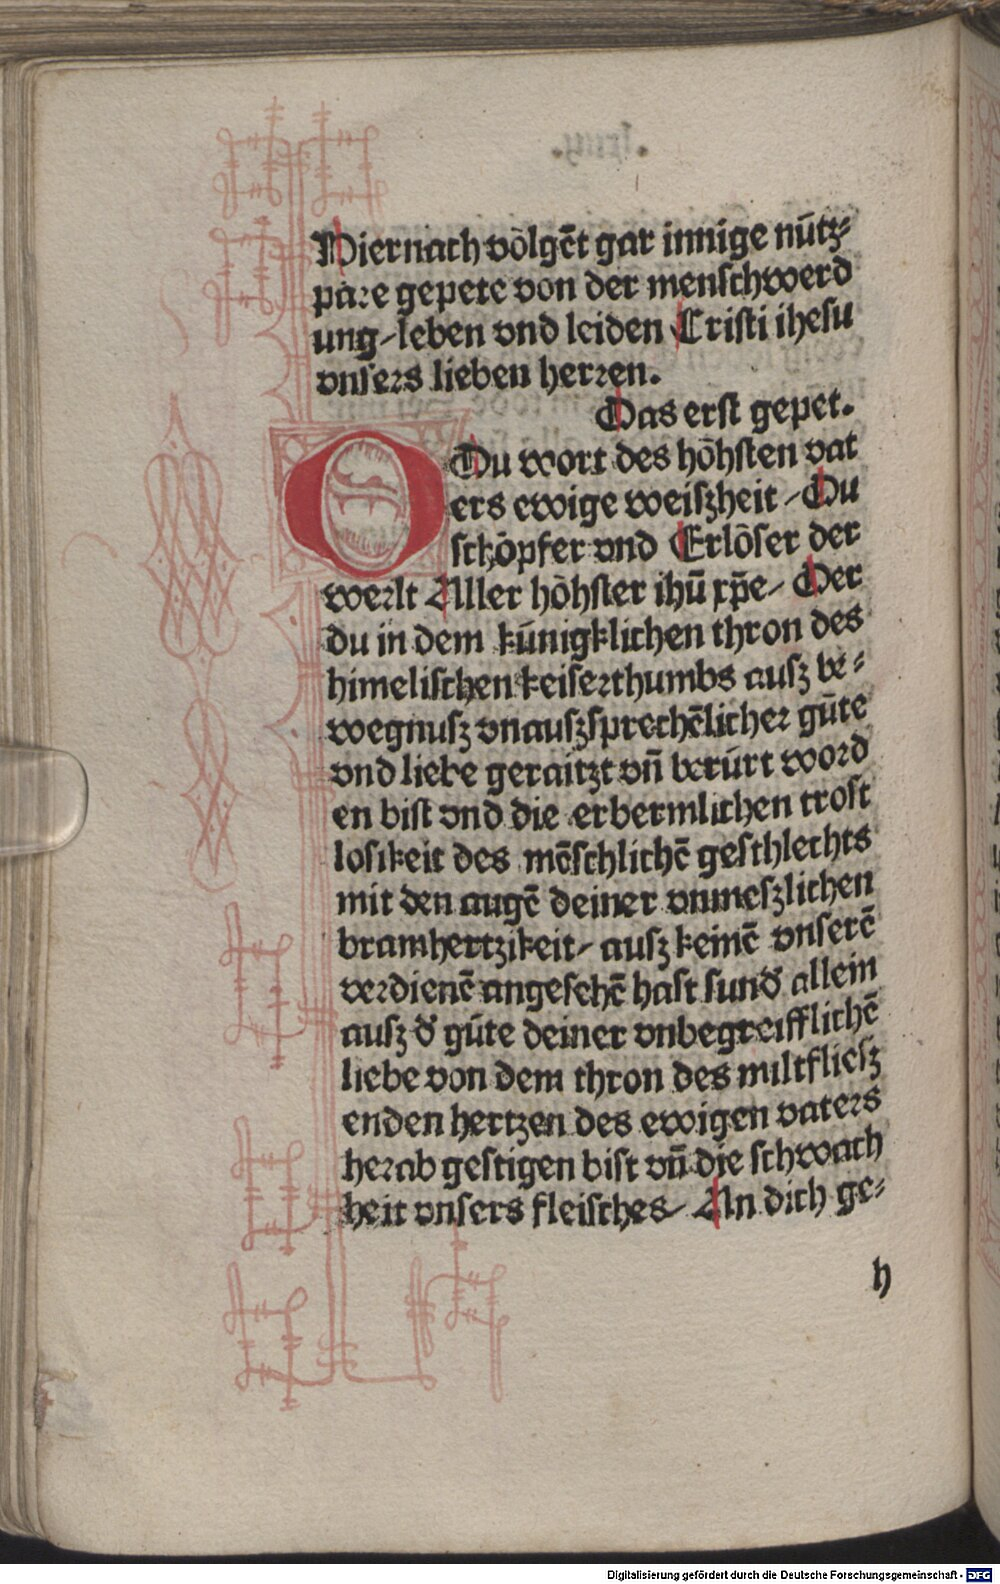 Hiernach võlgẽt gar innige nũtz⸗
pare gepete von der menschwerd
ung ⸗ leben vnd leiden Cristi ihesu
vnsers lieben herren.
Das erst gepet.
O Du wort des hõhsten vat
ers ewige weiszheit ⸗ Du
schõpfer vnd Erlõser der
werlt Aller hõhster ihũ xp̃e ⸗ Der
du in dem kũnigklichen thron des
himelischen keiserthumbs ausz be⸗
wegnusz vnauszsprechẽlicher gũte
vnd liebe geraitzt vñ berũrt word
en bist vnd die erbermlichen trost
losikeit des mẽschlichẽ geschlechts
mit den augẽ deiner vnmeszlichen
bramhertzikeit ⸗ ausz keinẽ vnserẽ
verdienẽ angesehẽ hast sunđ allein
ausz đ gũte deiner vnbegreifflichẽ
liebe von dem thron des miltfliesz
enden hertzen des ewigen vaters
herab gestigen bist vñ die schwach
heit vnsers fleisches ⸗ An dich ge⸗
h
Digitalisierung gefördert durch die Deutsche Forschungsgemeinschaft - DFG